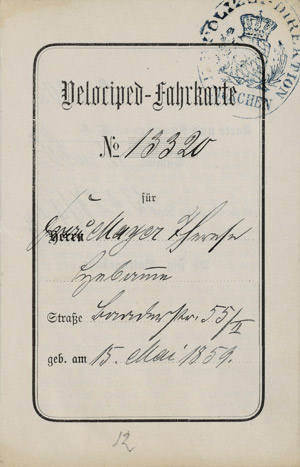 POLIZEI-DIREKTION
MÜNCHEN
Velociped-Fahrkarte
No 13320
für
Frau Mayer Therese
Hebamme
Straße Baaderstr. 55/II
geb. am 15. Mai 1859.
12